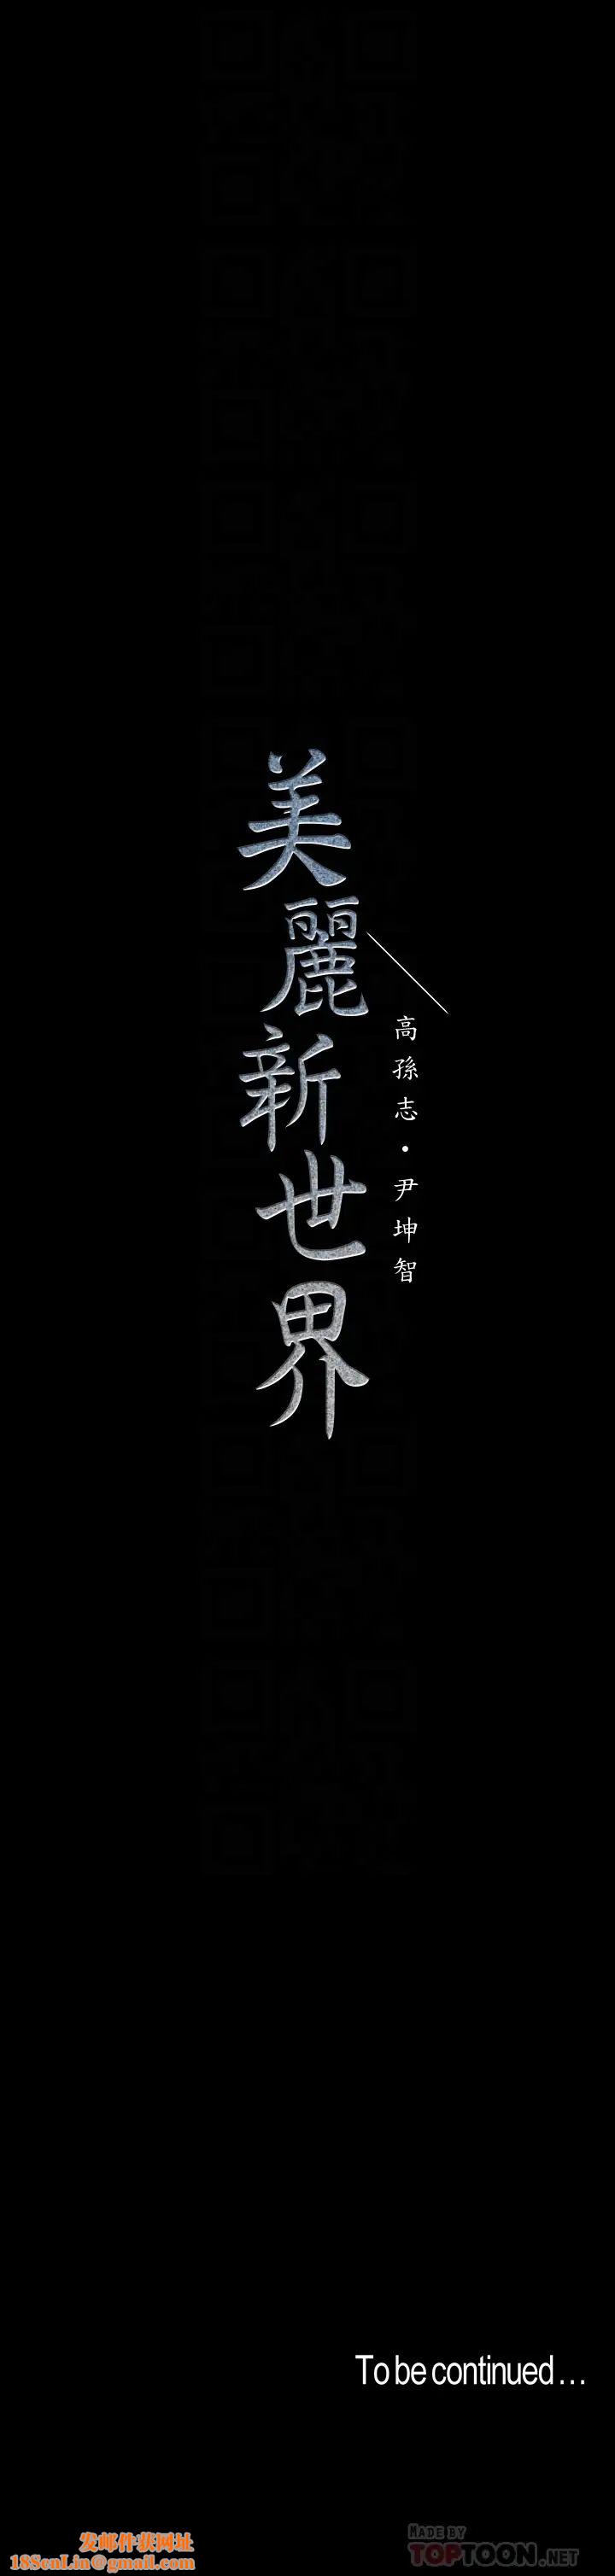 美麗新世界
高孫志·尹坤智
To be continued...
发邮件获网址
18SenLin@gmail.com
MADE BY
TOPTOON.NET